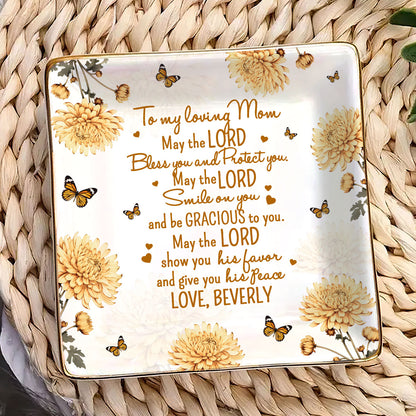 To my loving Mom
May the LORD
Bless you and Protect you.
May the LORD
Smile on you
and be GRACIOUS to you.
May the LORD
show you his favor
and give you his peace
LOVE, BEVERLY